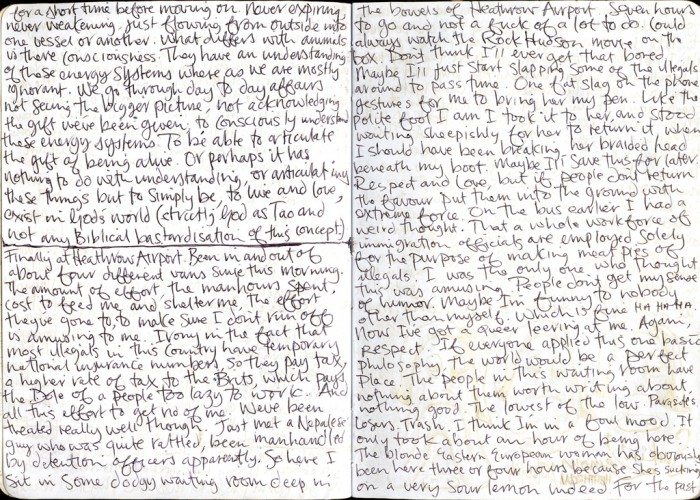 for a short time before moving on. Never expiring
never weakening. Just flowing from outside into
one vessel or another. What differs with animals
is there consciousness. They have an understanding
of these energy systems where as we are mostly
ignorant. We go through day to day affairs
not seeing the bigger picture, not acknowledging
the gift we've been given; to consciously understand
these energy systems. To be able to articulate
the gift of being alive. Or perhaps it has
nothing to do with understanding, or articulating
these things but to simply be, to live and love,
exist in God's world (strictly God as Tao and
not any Biblical bastardisation of this concept)
Finally at Heathrow Airport. Been in and out of
about four different vans since this morning.
The amount of effort, the manhours spent,
cost to feed me and shelter me, the effort
they've gone to, to make sure I don't run off
is amusing to me. Irony in the fact that
most illegals in this country have temporary
national insurance numbers, so they pay tax,
a higher rate of tax, to the Brits, which pays
the Dole of a people too lazy to work. And
all this effort to get rid of me. We've been
treated really well though. Just met a Nepalese
guy who was quite rattled, been manhandled
by detention officers apparently. So here I
sit in some dodgy waiting room deep in
the bowels of Heathrow Airport. Seven hours
to go and not a fuck of a lot to do. Could
always watch the Rock Hudson movie on the
box. Don't think I'll ever get that bored.
Maybe I'll just start slapping some of the illegals
around to pass time. One fat slag on the phone
gestures for me to bring her my pen. Like the
polite fool I am I took it to her, and stood
waiting sheepishly for her to return it when
I should have been breaking her braided head
beneath my boot. Maybe I'll save this for later.
Respect and Love, but if people don't return
the favour put them into the ground with
extreme force. On the bus earlier I had a
weird thought. That a whole workforce of
immigration officials are employed solely
for the purpose of making meat pies of
illegals. I was the only one who thought
this was amusing. People don't get my sense
of humor. Maybe I'm funny to nobody
other than myself. Which is fine HA HA HA
Now I've got a queer leering at me. Again.
Respect. If everyone applied this one basic
philosophy, the world would be a perfect
place. The people in this waiting room have
nothing about them worth writing about,
nothing good. The lowest of the low. Parasites.
Losers. Trash. I think I'm in a foul mood. It
only took about an hour of being here.
The blonde Eastern European woman has obviously
been here three or four hours because she's sucking
on a very sour lemon indeed. For the past